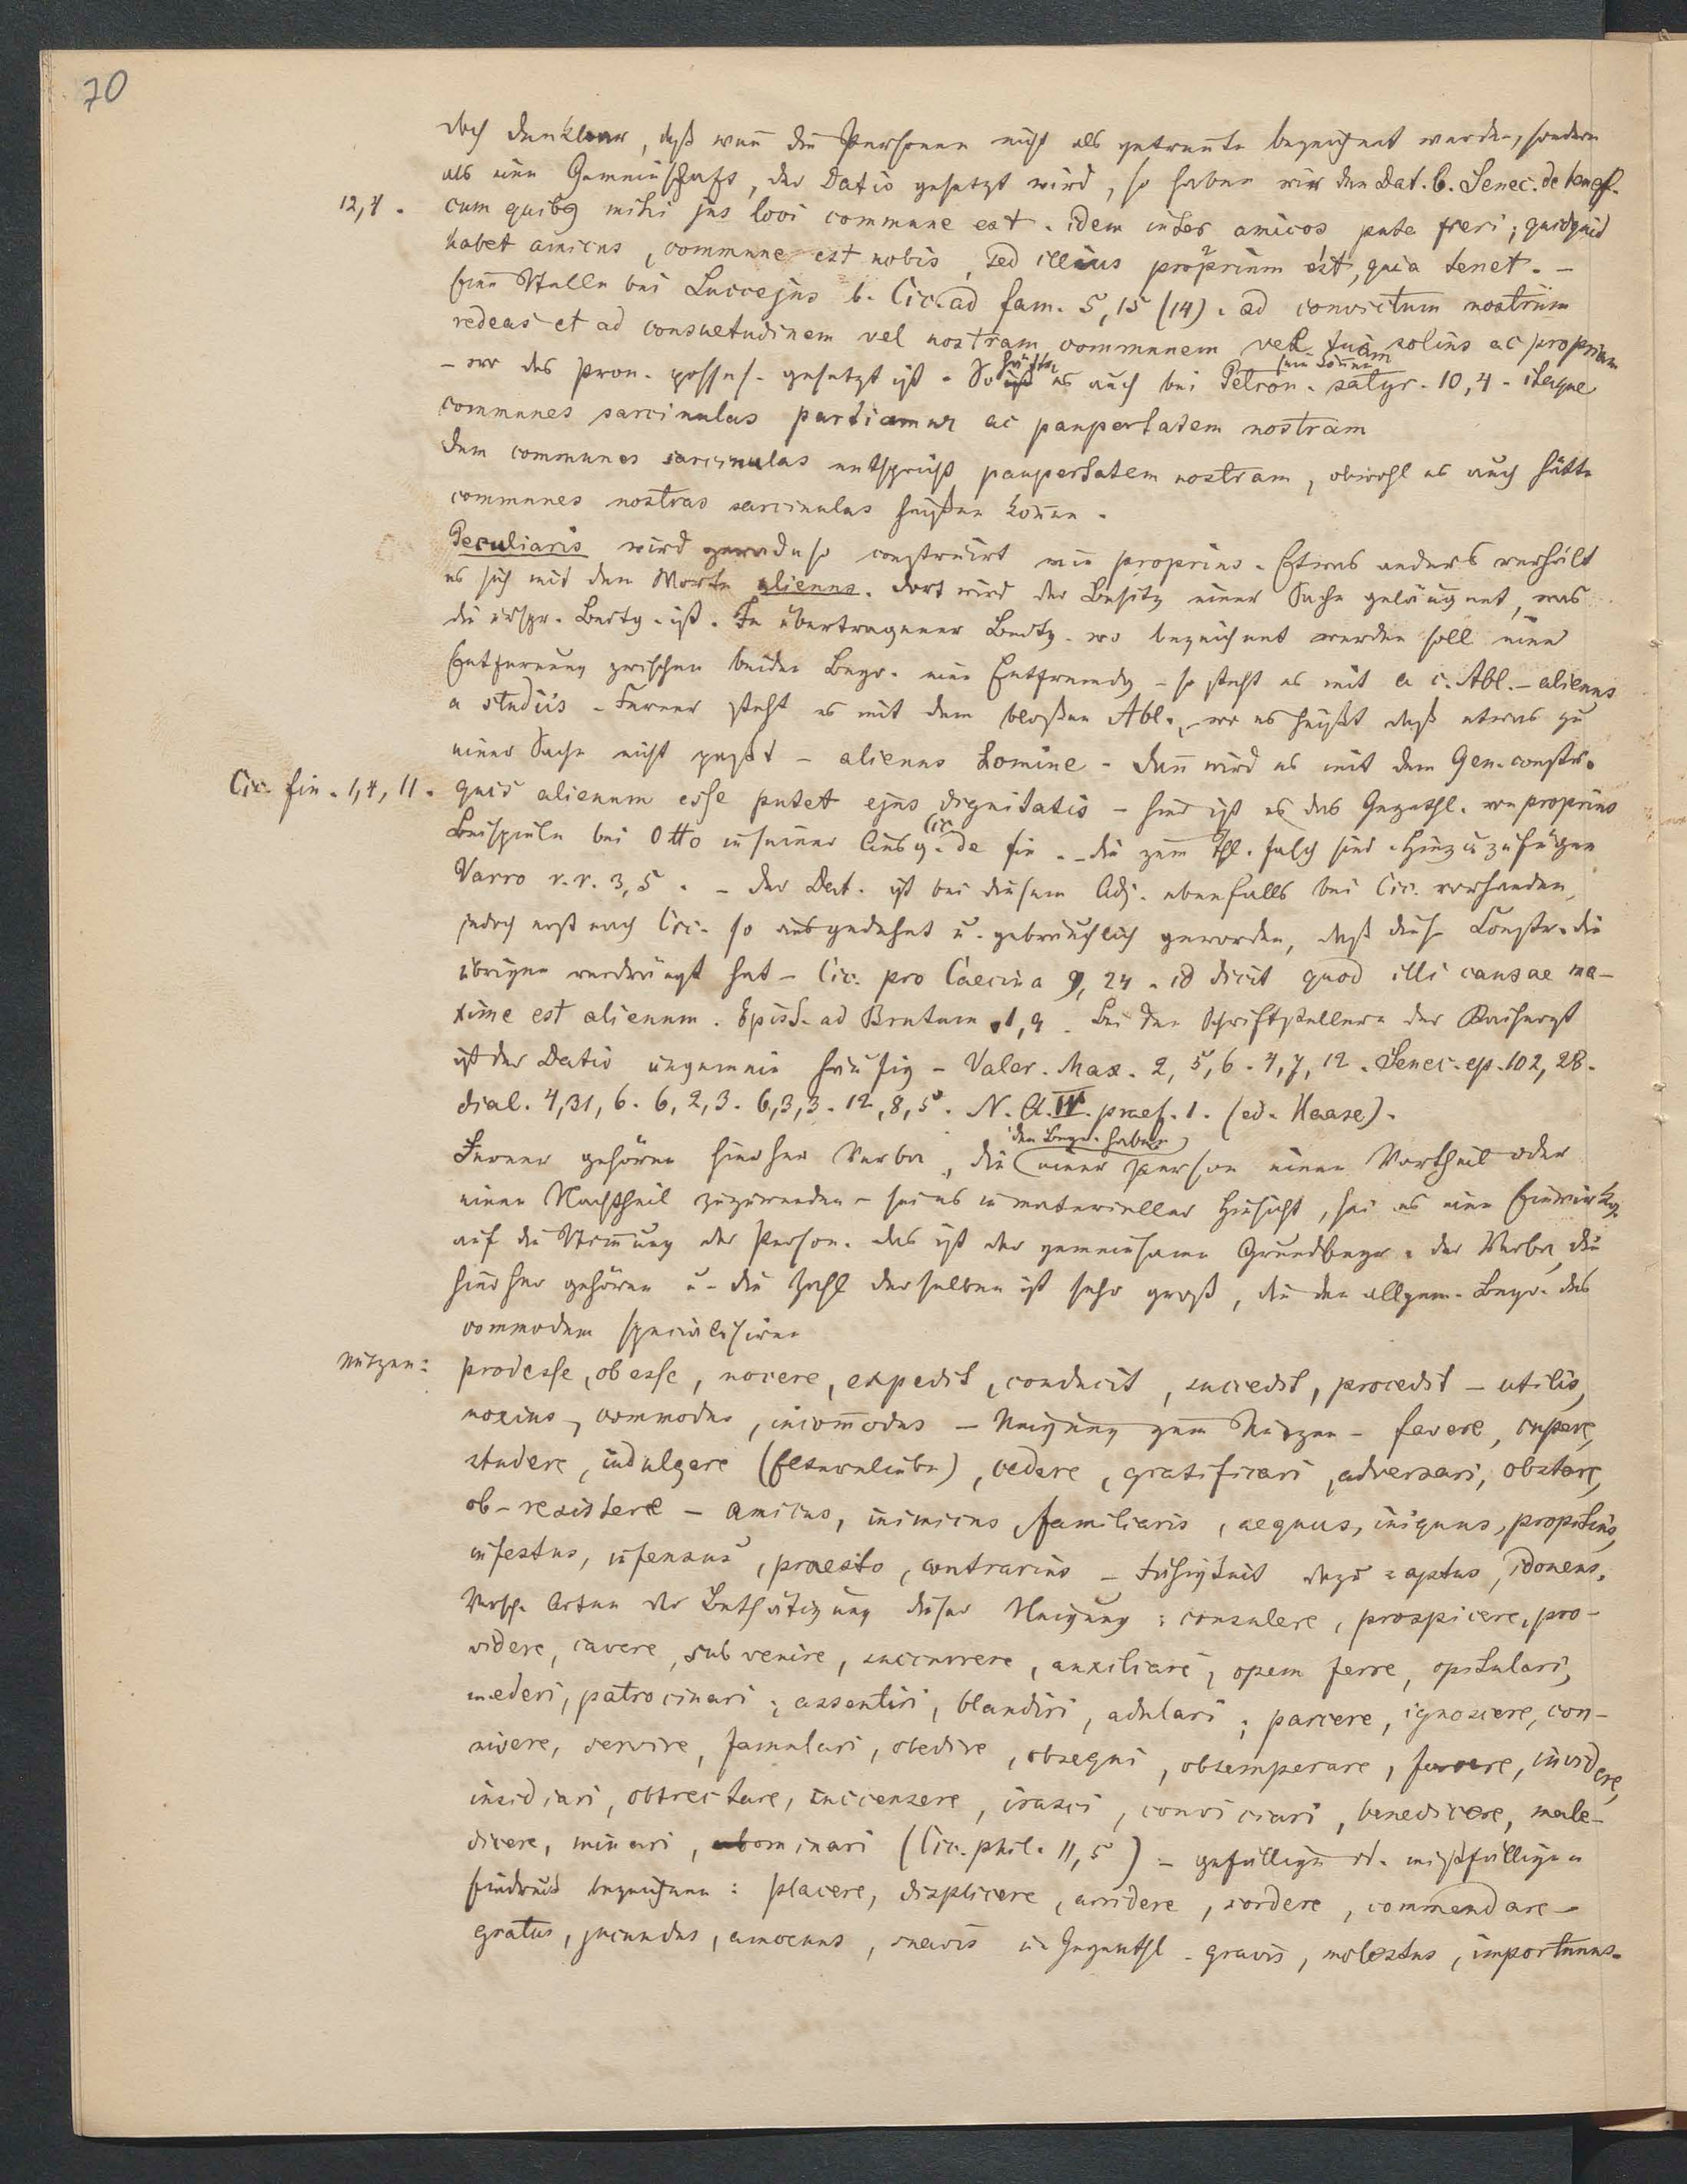 70
doch denkbar, daß wenn die Personen nicht als getrennte bezeichnet werden, sondern
als eine Gemeinschaft, der Dativ gesetzt wird, so haben wir den Dat. b. Senec. de benef.
12,4. cum quibus mihi jus loci commune est. idem inter amicos puta fieri; quidquid
habet amicus, commune est nobis, sed illius proprium est, quia tenet. –
Eine Stelle bei Luccejus b. Cic. ad fam. 5, 15 (14). ad convictum nostrum
redeas et ad consuetudinem vel nostram communem vel tuam solius ac propriam
– wo das Pron. possess. gesetzt ist. So hätte es auch bei Petron. satyr. 10, 4. itaque
sein können
communes sarcinulas partiamur ac paupertatem nostram
dem communes sarcinulas entspricht paupertatem nostram, obwohl es auch hätte
communes nostras sarcinulas heißen können.
Peculiaris wird geradeso construirt wie proprius. Etwas anders verhält
es sich mit dem Worte alienus. dort wird der Besitz einer Sache geläugnet, was
die urspr. Bedtg. ist. In übertragener Bedtg. wo bezeichnet werden soll eine
Entfernung zwischen beiden Begr. eine Entfremdg – so steht es mit a c. Abl. – alienus
a studiis – Ferner steht es mit dem bloßen Abl., wo es heißt daß etwas zu
einer Sache nicht paßt – alienus homine – dann wird es mit dem Gen. constr.
Cic. fin. 1, 4, 11. quis alienum esse putet ejus dignitatis – hier ist es das Gegenthl. von proprius
Beispiele bei Otto in seiner Ausg. Cic. de fin. – die zum Thl. falsch sind. Hinzuzufügen
Varro r. r. 3, 5. – der Dat. ist bei diesem Adj. ebenfalls bei Cic. vorhanden,
jedoch erst nach Cic. so ausgedehnt u. gebräuchlich geworden, daß diese Constr. die
übrigen verdrängt hat – Cic. pro Caecina 9, 24. id dicit quod illi causae ma-
xime est alienum. Epist. ad Brutum 1, 9. Bei den Schriftstellern der Kaiserzt
ist der Dativ ungemein häufig – Valer. Max. 2, 5, 6. 4, 7, 12. Senec. ep. 102, 28.
dial. 4, 31, 6. 6, 2, 3. 6, 3, 3. 12, 8, 5. N. Q. IV. praef. 1. (ed. Haase).
Ferner gehören hierher Verba, die den Begr. haben einer Person einen Vortheil oder
einen Nachtheil zuzuwenden – sei es in materieller Hinsicht, sei es eine Einwirkg.
auf die Stimmung der Person. das ist der gemeinsame Grundbegr. der Verba, die
hierher gehören u. die Zahl derselben ist sehr groß, die den allgem. Begr. des
commodum specialisiren
Nutzen: prodesse, obesse, nocere, expedit, conducit, succedit, procedit – utilis,
noxius, commodus, incommodus – Neigung zum Nutzen – favere, cupere,
studere, indulgere (Elternliebe), cedere, gratificari, adversari, obstare,
ob-resistere – amicus, inimicus, familiaris, aequus, iniquus, propitius,
infestus, infensus, praesto, contrarius – Fähigkeit dazu: aptus, idoneus.
Versch. Arten der Bethätigung dieser Neigung: consulere, prospicere, pro-
videre, cavere, subvenire, succurrere, auxiliari, opem ferre, opitulari,
mederi, patrocinari; assentiri, blandiri, adulari; parcere, ignoscere, con-
nivere, servire, famulari, obedire, obsequi, obtemperare, favere, invidere,
insidiari, obtrectare, succensere, irasci, conviciari, benedicere, male-
dicere, minari, abominari (Cic. phil. 11, 5) – gefälligen od. mißfälligen
Eindruck bezeichnen: placere, displicere, arridere, sordere, commendare –
gratus, jucundus, amoenus, suavis u. Gegenthl. gravis, molestus, importunus.